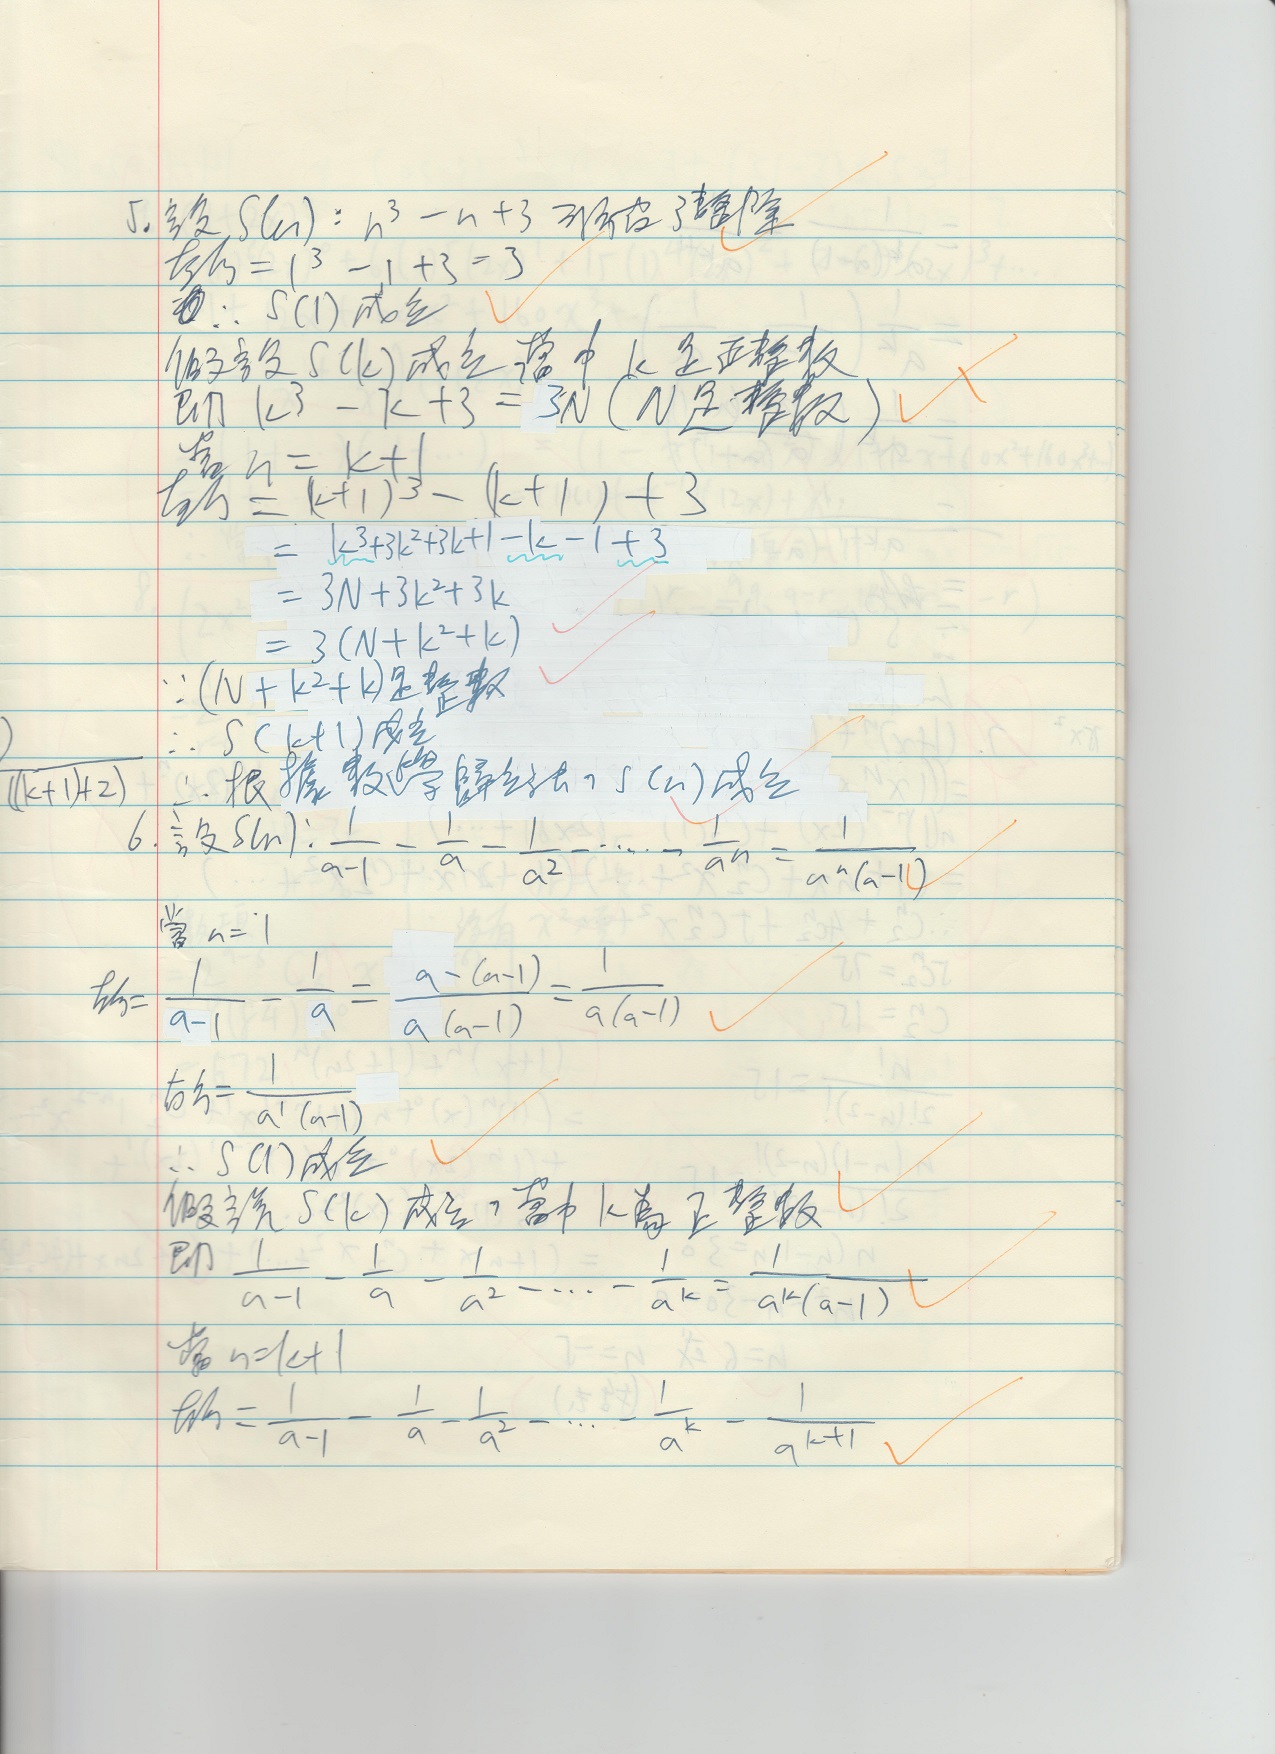 5. 設 S(n): n³ - n + 3 可以被 3 整除
左方 = 1³ - 1 + 3 = 3
∴ S(1) 成立
假設 S(k) 成立 當中 k 是正整數
即 k³ - k + 3 = 3N (N是整數)
當 n = k+1
左方 = (k+1)³ - (k+1) + 3
= k³+3k²+3k+1-k-1+3
= 3N+3k²+3k
= 3(N+k²+k)
∵ (N+k²+k)是整數
∴ S(k+1)成立
((k+1)+2)
∴ 根據數學歸納法, S(n)成立
6. 設S(n): 1/(a-1) - 1/a - 1/a² - ..... - 1/aⁿ = 1/(aⁿ(a-1))
當 n=1
左方= 1/(a-1) - 1/a = (a-(a-1))/(a(a-1)) = 1/(a(a-1))
右方= 1/(a¹(a-1))
∴ S(1)成立
假設 S(k) 成立, 當中 k為正整數
即 1/(a-1) - 1/a - 1/a² - .... - 1/aᵏ = 1/(aᵏ(a-1))
當 n=k+1
左方 = 1/(a-1) - 1/a - 1/a² - ... - 1/aᵏ - 1/aᵏ⁺¹